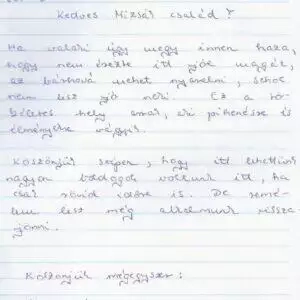 Kedves Mizsár család?
Ha valaki úgy megy innen haza,
hogy nem érezte itt jól magát,
az bárhová mehet nyaralni, sehol
nem lesz jó neki. Ez a tö-
kéletes hely annak, aki pihenésre és
élményekre vágyik.
Köszönjük szépen, hogy itt lehettünk
nagyon boldogok voltunk itt, ha
csak rövid időre is. De remé-
lem lesz még alkalmunk vissza-
jönni.
Köszönjük mégegyszer: